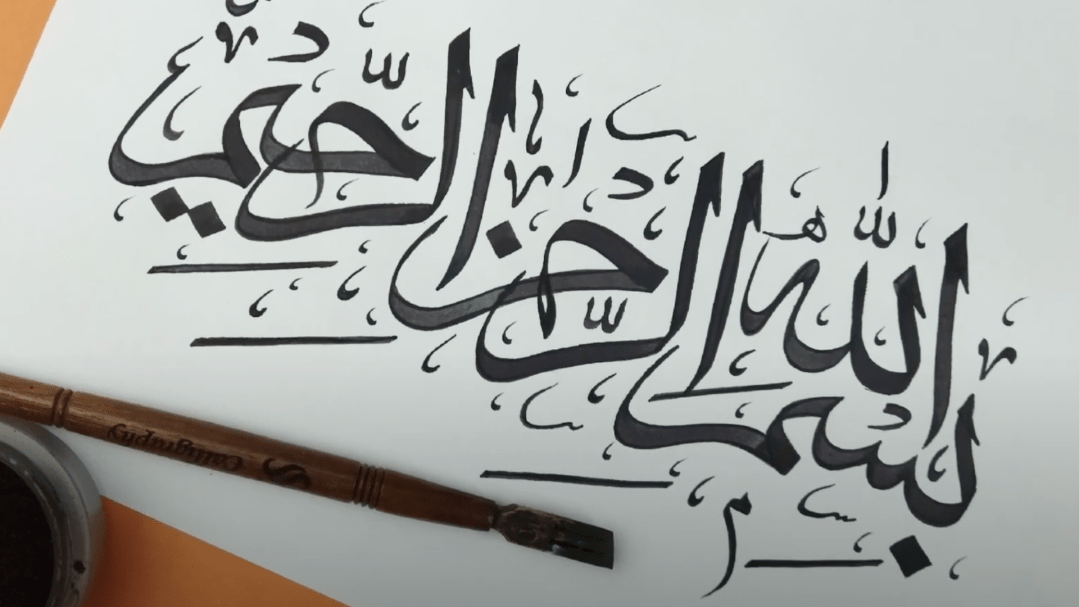 بسم الله الرحمن الرحيم
Calligraphy